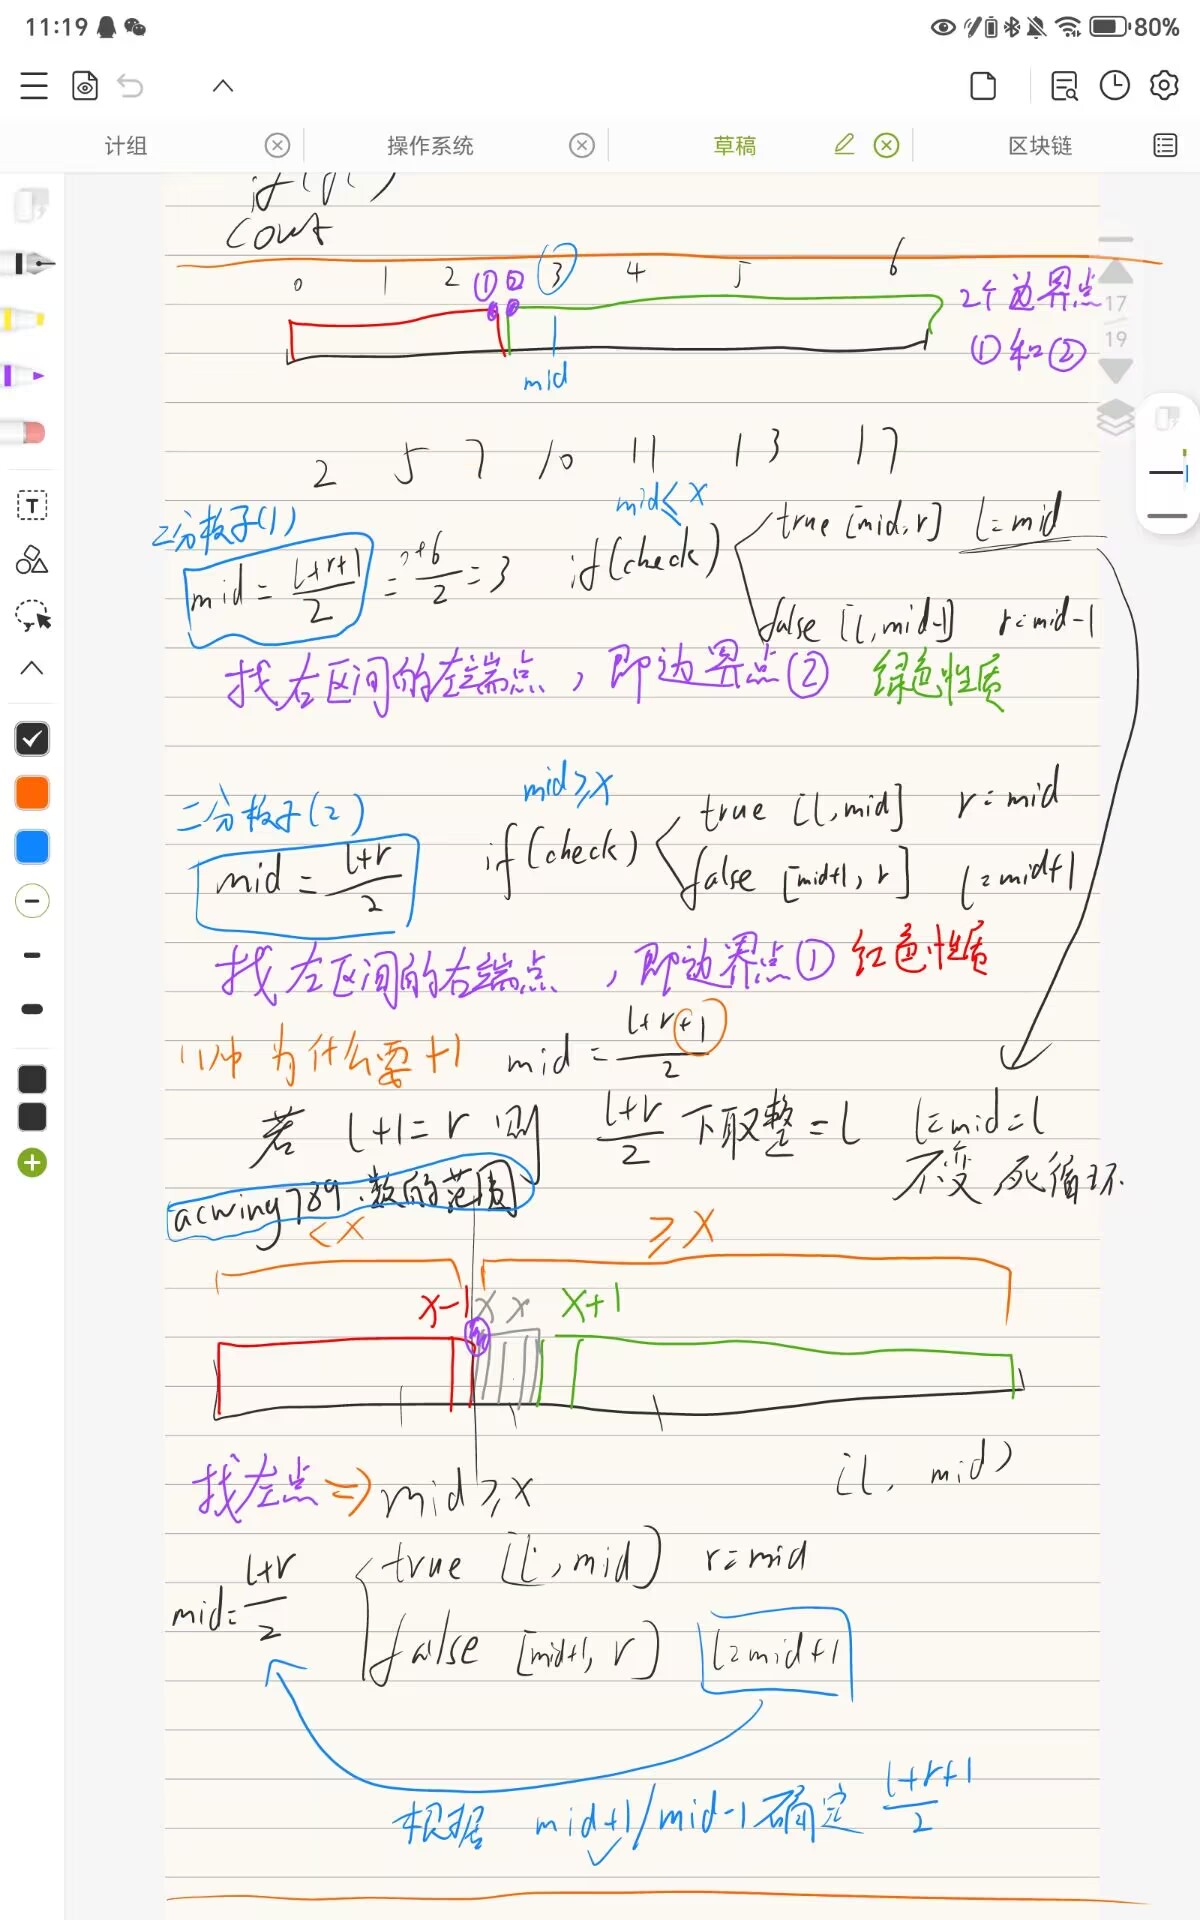 11:19
80%
计组
操作系统
草稿
区块链
cout
0 1 2 ① ② ③ 4 5 6
2个边界点
①和②
mid
17
19
2 5 7 10 11 13 17
二分板子(1)
mid≤x
mid = (l+r+1)/2 = 6/2 = 3
if(check)
true [mid,r] l=mid
false [l,mid-1] r=mid-1
找右区间的左端点，即边界点② 绿色性质
二分板子(2)
mid≥x
mid = (l+r)/2
if(check)
true [l,mid] r=mid
false [mid+1,r] l=mid+1
找左区间的右端点，即边界点① 红色性质
(1)中为什么要+1 mid = (l+r+1)/2
若 l+1=r 则 (l+r)/2 下取整=l l=mid=l
不变 死循环
acwing789.数的范围
<x
≥x
x-1 x x x+1
找左点 => mid≥x
[l, mid)
mid=(l+r)/2
true [l,mid] r=mid
false [mid+1,r] l=mid+1
根据 mid+1/mid-1确定 (l+r+1)/2